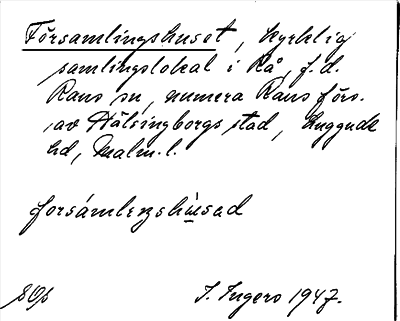 Församlingshuset, kyrklig
samlingslokal i Rå, f.d.
Raus sn, numera Raus förs.
av Hälsingborgs stad, Luggude
hd, Malm. l.
forsámlenshùsad
SOp
I. Ingers 1947.